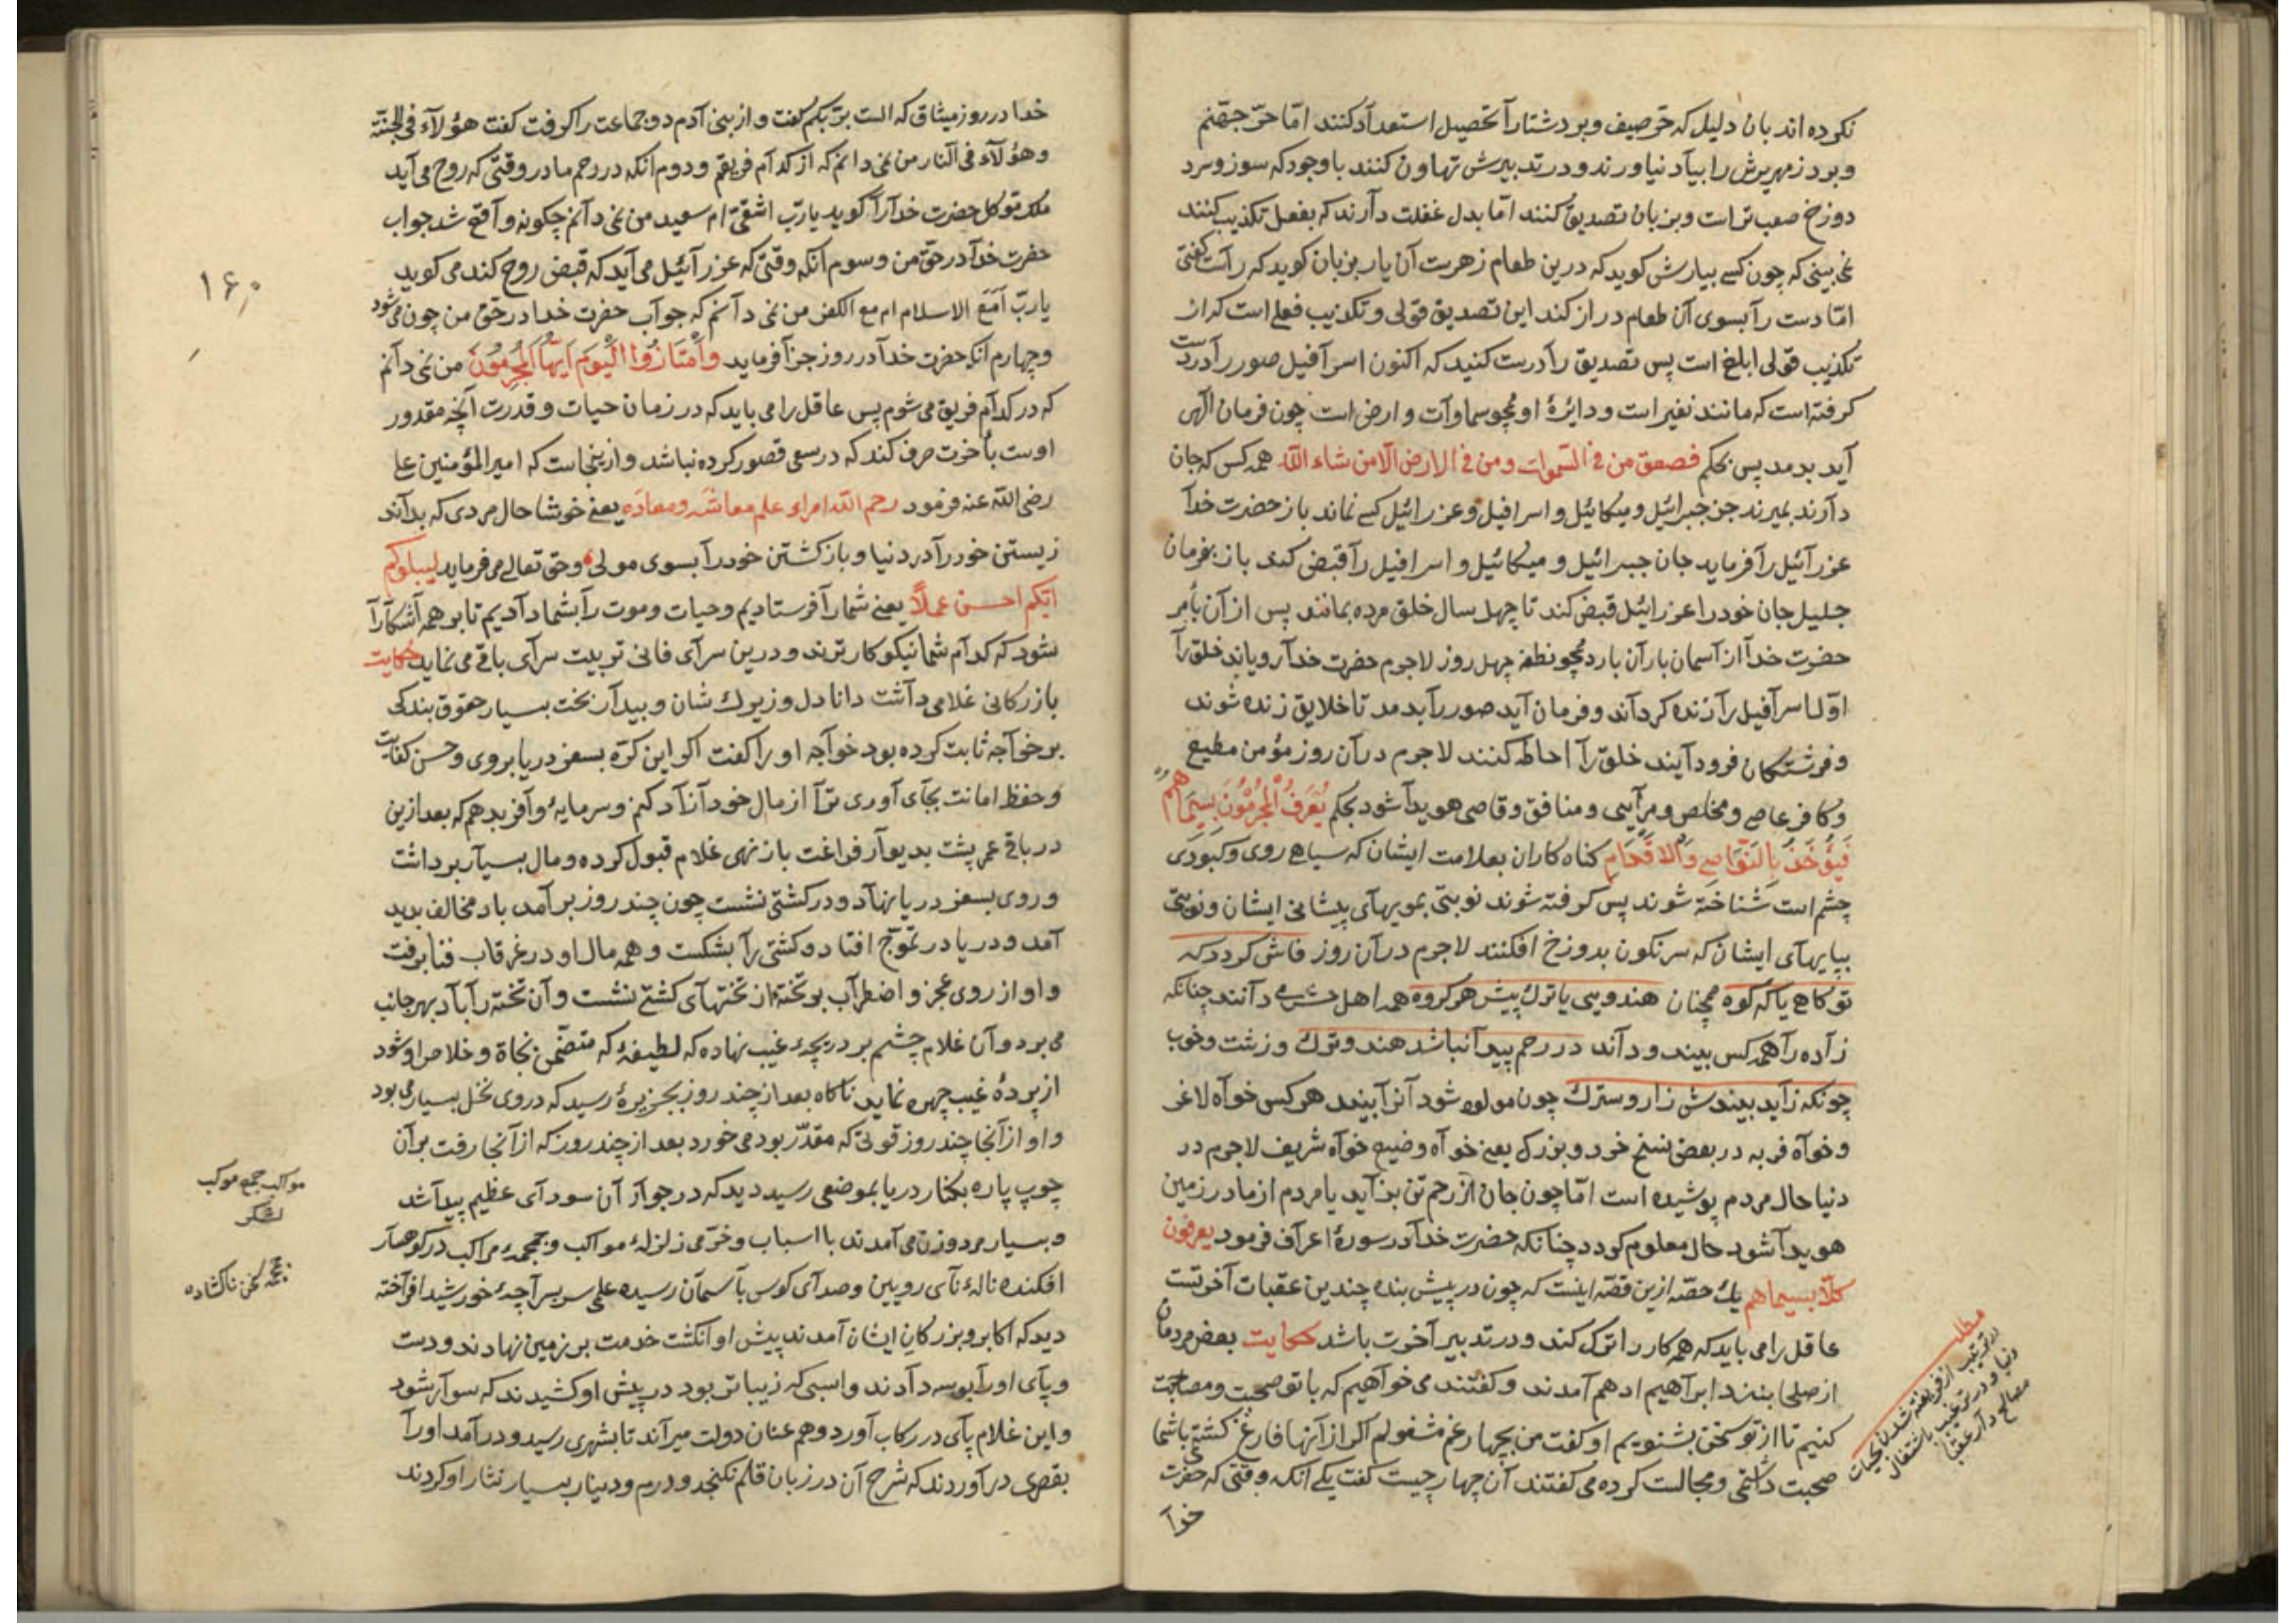 نکرده اند بان دلیل که حرّ صیف و برد شتا را تحصیل استعداد کنند امّا حرّ جهنّم
و برد زمهریرش را بیاد نیاورند و در تدبیرش تهاون کنند باوجود که سوز و سرد
دوزخ صعب تر است و بزبان تصدیق کنند امّا بدل غفلت دارند که بفعل تکذیب کنند
نمی بینی که چون کسی بیارش کوید که درین طعام زهرست آن یار بزبان کوید که راست کفتی
امّا دست را بسوی آن طعام دراز کند این تصدیق قولی و تکذیب فعلی است که از
تکذیب قولی ابلغ است پس تصدیق را درست کنید که اکنون اسرافیل صور را در دست
کرفته است که مانند نفیر است و دایرهٔ او همچو سماوات و ارض است چون فرمان الهی
آید بدمد پس بحکم فصعق من فی السّموات و من فی الارض الّا من شاء اللّه همه کس که جان
دارند بمیرند جز جبرائیل و میکائیل و اسرافیل و عزرائیل کسی نماند باز حضرت خدا
عزرائیل را فرماید جان جبرائیل و میکائیل و اسرافیل را قبض کند باز بفرمان
جلیل جان خود را عزرائیل قبض کند تا چهل سال خلق مرده بمانند پس از آن بأمر
حضرت خدا از آسمان باران بارد همچو نطفه چهل روز لاجرم حضرت خدا رویاند خلق را
اوّل اسرافیل را زنده کرداند و فرمان آید صور را بدمد تا خلایق زنده شوند
و فرشتکان فرود آیند خلق را احاطه کنند لاجرم در آن روز مؤمن مطیع
و کافر عاصی و مخلص و مرآیی و منافق و قاصی هویدا شود بحکم یُعْرَفُ الْمُجْرِمُونَ بِسِیمَاهُمْ
فَیُؤْخَذُ بِالنَّوَاصِی وَالْاَقْدَامِ کناه کاران بعلامت ایشان که سیاهی روی و کبودی
چشم است شناخته شوند پس کرفته شوند نوبتی بمویهای پیشانی ایشان و نوبتی
بپایهای ایشان که سرنکون بدوزخ افکنند لاجرم در آن روز فاش کردد که
تو کاهی یا که کوه همچنان هندویی یا ترک پیش هر کروه همه اهل حشر می دانند چنانکه
زاده را همه کس بیند و داند در رحم پیدا نباشد هند و ترک و زشت و خوب
چونکه زاید بیندش زار و سترک چون مولود شود آنرا بیند هر کس خواه لاغر
و خواه فربه در بعض نسخ خرد و بزرک یعنی خواه وضیع خواه شریف لاجرم در
دنیا حال مردم پوشیده است امّا چون جان از رحم تن بزاید یا مردم از مادر زمین
هویدا شود حال معلوم کردد چنانکه حضرت خدا در سورهٔ اعراف فرمود یعرفون
کلّاً بسیماهم یک حصّه ازین قصّه اینست که چون در پیش بنده چندین عقبات آخرتست
عاقل را می باید که همه کار را ترک کند و در تدبیر آخرت باشد حکایت بعض مردمان
از صلحا بنزد ابراهیم ادهم آمدند و کفتند می خواهیم که با تو صحبت و مصاحبت
کنیم تا از تو سخن بشنویم او کفت من بچهار غم مشغولم اکر از آنها فارغ کشتمی باشما
صحبت داشتمی و مجالست کرده می کفتند آن چهار چیست کفت یکی آنکه وقتی که حضرت
خدا
مطلب
در ترغیب از فریفته شدن بحیات
دنیا و در ترغیب باشتغال
مصالح دار عقبا
خدا در روز میثاق که الست بربّکم کفت و از بنی آدم دو جماعت را کرفت کفت هؤلاء فی الجنّة
و هؤلاء فی النار من نمی دانم که از کدام فریقم و دوم آنکه در رحم مادر وقتی که روح می آید
ملک موکل حضرت خدا را کوید یا ربّ اشقیّ ام سعید من نمی دانم چکونه واقع شد جواب
حضرت خدا در حقّ من و سوم آنکه وقتی که عزرائیل می آید که قبض روح کند می کوید
یا ربّ أمَعَ الاسلام ام مع الکفر من نمی دانم که جواب حضرت خدا در حق من چون می شود
و چهارم آنکه حضرت خدا در روز جزا فرماید وَامْتَازُوا الْیَوْمَ اَیُّهَا الْمُجْرِمُونَ من نمی دانم
که در کدام فریق می شوم پس عاقل را می باید که در زمان حیات و قدرت آنچه مقدور
اوست بآخرت صرف کند که در سعی قصور کرده نباشد و ازینجاست که امیر المؤمنین علی
رضی اللّه عنه فرمود رحم اللّه امراء علم معاشَه و معادَه یعنی خوشا حال مردی که بداند
زیستن خود را در دنیا و باز کشتن خود را بسوی مولی و حقّ تعالی می فرماید لیبلوکم
ایّکم احسن عملاً یعنی شما را فرستادیم و حیات و موت را بشما دادیم تا بر همه آشکارا
شود که کدام شما نیکوکار ترند و درین سرای فانی تربیت سرای باقی می نماید حکایت
بازرکانی غلامی داشت دانا دل و زیرک شان و بیدار بخت بسیار حقوق بندکی
بر خواجه ثابت کرده بود خواجه او را کفت اکر این کرّه بسفر دریا بروی و حسن کفایت
و حفظ امانت بجای آوری ترا از مال خود آزاد کنم و سرمایهٔ وافر بدهم که بعد ازین
در باقی عمر پشت بدیوار فراغت باز نهی غلام قبول کرده و مال بسیار برداشت
و روی بسفر دریا نهاد و در کشتی نشست چون چند روز برآمد باد مخالف پدید
آمد و دریا در تموّج افتاد و کشتی را بشکست و همه مال او در غرقاب فنا برفت
و او از روی عجز و اضطراب بر تختهٔ از تختهای کشتی نشست و آن تخته را باد بهر جانب
می برد و آن غلام چشم بر دریچهٔ غیب نهاده که لطیفهٔ که متضمّن نجاة و خلاص او شود
از پردهٔ غیب چهره نماید ناکاه بعد از چند روز بجزیرهٔ رسید که در وی نخل بسیار می بود
و او از آنجا چند روز قوتی که مقدّر بود می خورد بعد از چند روز که از آنجا رفت بر آن
چوب پاره بکنار دریا بموضعی رسید دید که در جوار آن سودای عظیم پیدا شد
و بسیار مرد و زن می آمدند با اسباب و خرّمی زلزلهٔ مواکب و جمجمهٔ مراکب در کوهسار
افکنده نالهٔ نای رویین و صدای کوس بآسمان رسیده علی سر بسراچهٔ خورشید افراخته
دید که اکابر و بزرکان ایشان آمدند پیش او انکشت خدمت بر زمین نهادند و دست
و پای او را بوسه دادند و اسبی که زیباتر بود در پیش او کشیدند که سوار شود
و این غلام پای در رکاب آورد و هم عنان دولت میراند تا بشهری رسید و درآمد او را
بقصری درآوردند که شرح آن در زبان قلم نکنجد و درم و دینار بسیار نثار او کردند
۱۶۰
مواکب جمع موکب
لشکر
جمجمه سخن ناکشاده